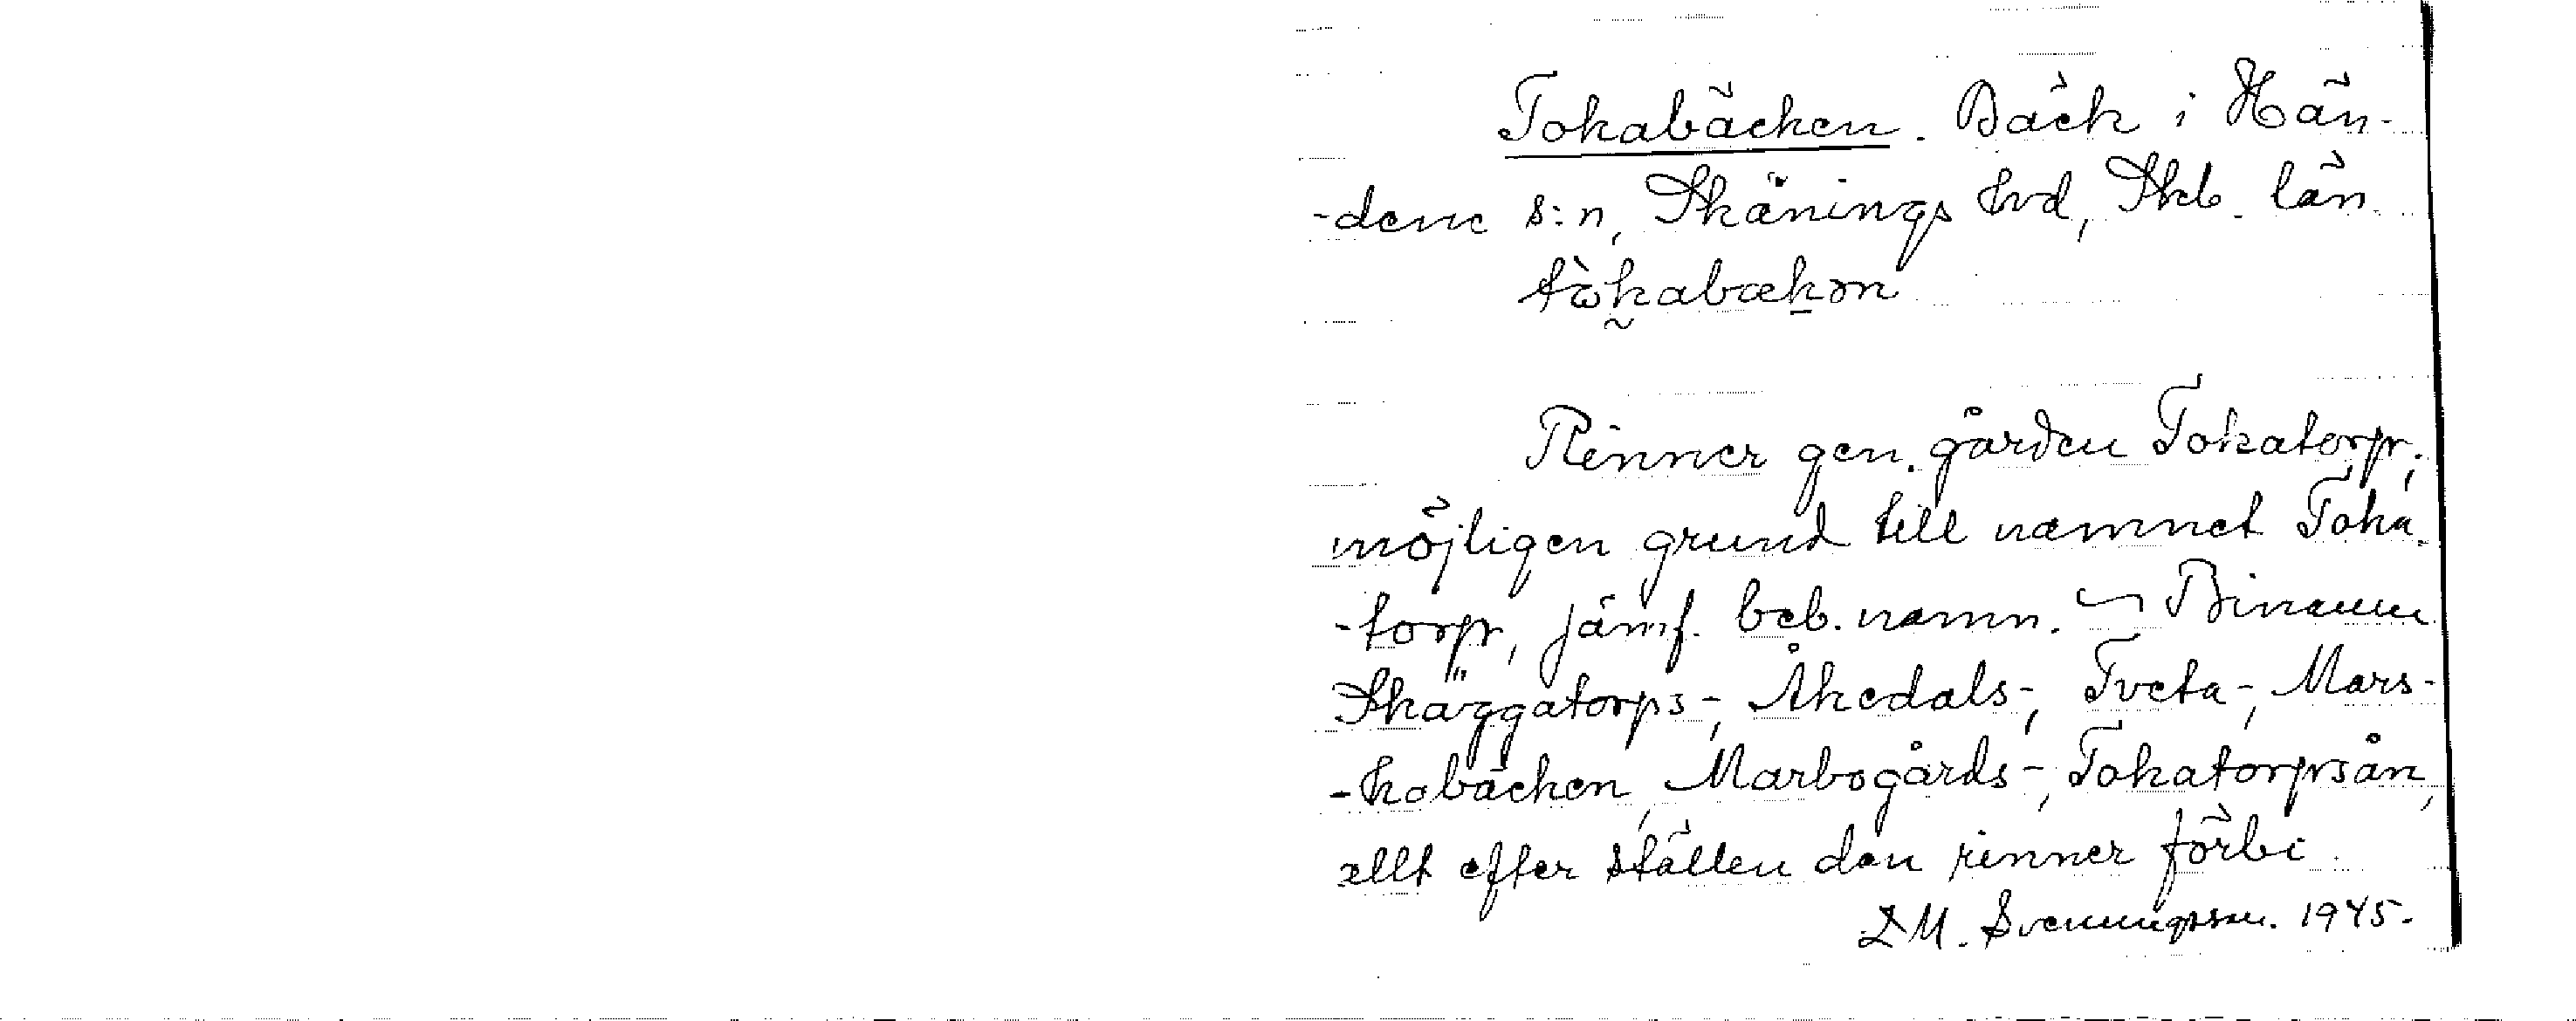 Tokabäcken. Bäck i Hän-
-dene s:n, Skånings hrd, Skb. län.
tòkabækən
Rinner gen. gården Tokatorp,
möjligen grund till namnet Toka
-torp, jämf. beb. namn. Binamn
Skäggatorps-, Åkedals-, Tveta-, Mars-
-kobäcken, Marbogårds-, Tokatorpsån,
allt efter ställen den rinner förbi.
L M. Svenungsson. 1945.